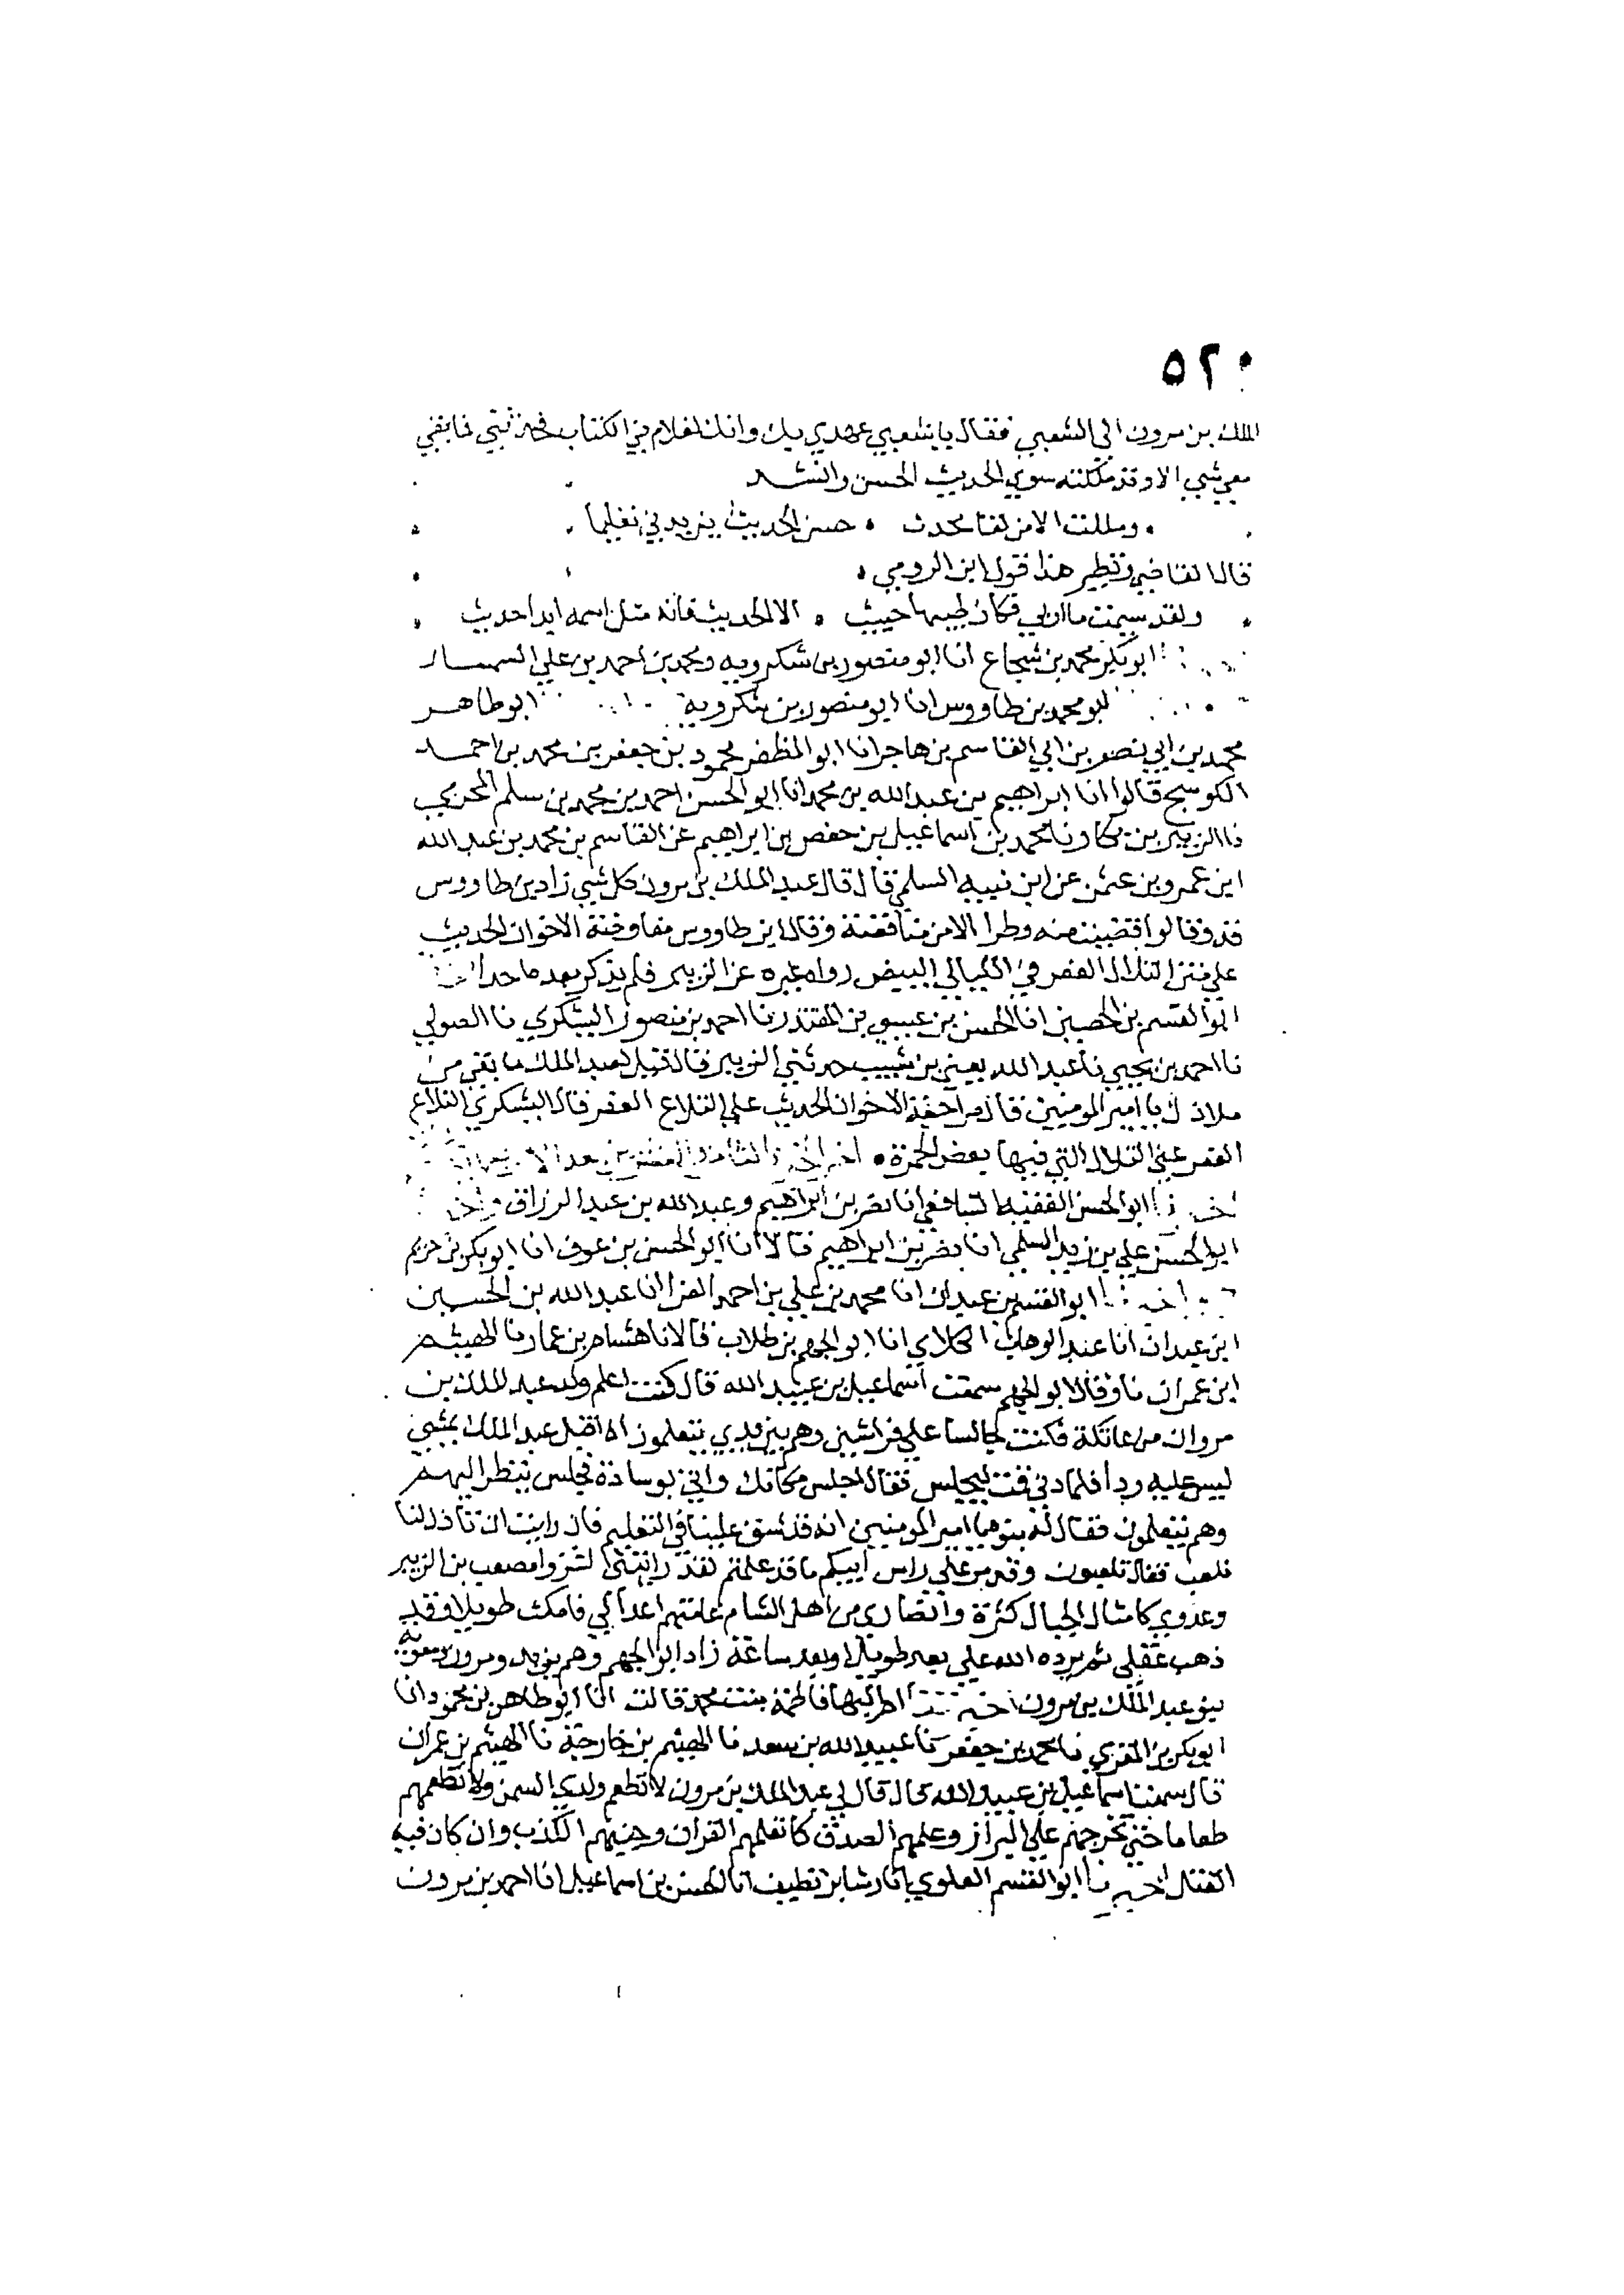 ٥٢٠
الملك بن مرون الى الشعبي فقال يا شعبي عهدي بك وانك لغلام في الكتاب فحدثني فما بقي
معي شي الا وقد مللته سوي الحديث الحسن وانشد
ومللت الا من لقا محدث حسن الحديث يزيدني تعليما
قال القاضي ونظير هذا قول ابن الرومي
ولقد سيمت ماربي فكان طيبها خبيث الا الحديث فانه مثل اسمه ابدا حديث
ابو بكر محمد بن شجاع انا ابو منصور بن شكرويه ومحمد بن احمد بن علي السمسار
ابو محمد بن طاووس انا ابو منصور بن شكرويه ابو طاهر
محمد بن ابي نصر بن ابي القاسم بن هاجر انا ابو المظفر محمود بن جعفر بن محمد بن احمد
الكوسج قالوا انا ابراهيم بن عبدالله بن محمد انا ابو الحسن احمد بن محمد بن سلم المخرمي
نا الزبير بن بكار ونا محمد بن اسماعيل بن حفص بن ابراهيم عن القاسم بن محمد بن عبد الله
ابن عمرو بن عثمن عن ابن نبيه السلمي قال قال عبد الملك بن مرون كل شي زاد بن طاووس
قد وقالوا قضيت منه وطرا الا من مناقضة وقال ابن طاووس مفاوضة الاخوان الحديث
علي متن التلال العفر في الليالي البيض رواه غيره عن الزبير فلم يذكر بعده احدا
ابو القسم بن الحصين انا الحسن بن عيسى بن المقتدر نا احمد بن منصور اليشكري نا الصولي
نا احمد بن يحيي نا عبد الله يعني بن شبيب حدثني الزبير قال قيل لعبد الملك ما بقي من
ملاذك يا امير المومنين قال مراجعة الاخوان الحديث علي التلاع العفر قال اليشكري التلاع
العفر يعني التلال التي فيها بعض الحمرة
ابو الحسن الفقيه الشافعي انا نصر بن ابراهيم وعبد الله بن عبد الرزاق
ابو الحسن علي بن زيد السلمي انا نصر بن ابراهيم قالا انا ابو الحسن بن عوف انا ابو بكر بن خريم
ابو القسم بن عبدان انا محمد بن علي بن احمد الفرا انا عبد الله بن الحسين
ابن عبدان انا عبد الوهاب الكلابي انا ابو الجهم بن طلاب قالا نا هشام بن عمار نا الهيثم
ابن عمران نا وقال ابو الجهم سمعت اسماعيل بن عبيد الله قال كنت اعلم ولد عبد الملك بن
مروان من عاتكة فكنت جالسا علي فراشي وهم بين يدي يتعلمون اذ اقبل عبد الملك يمشي
ليس عليه ردا فلما دني قمت ليجلس فقال اجلس مكانك واتي بوسادة فجلس ينظر اليهم
وهم يتعلمون فقال له بنوه يا امير المومنين انه قد شق علينا في التعليم فان رايت ان تاذن لنا
نلعب فقال تلعبون وقد مر علي راس ابيكم ما قد علمتم لقد رايتني اغزوا مصعب بن الزبير
وعدوي كامثال الجبال كثرة وانصاري من اهل الشام عامتهم اعدا لي فامكث طويلا وقد
ذهب عقلي ثم يرده الله علي بعد طويلا وبعد ساعة زاد ابو الجهم وهم يزيد ومرون ومعوية
بنو عبد الملك بن مرون اخبرتنا ام البها فاطمة بنت محمد قالت انا ابو طاهر بن محمود انا
ابو بكر بن المقري نا محمد بن جعفر نا عبيد الله بن سعد نا الهيثم بن خارجة نا الهيثم بن عمران
قال سمعت اسماعيل بن عبيد الله قال قال لي عبد الملك بن مرون لا تطعم ولدي السمن ولا تطعمهم
طعاما حتي تخرجهم علي البراز وعلمهم الصدق كما تعلمهم القران وجنبهم الكذب وان كان فيه
القتل اخبرنا ابو القسم العلوي انا رشا بن نظيف انا الحسن بن اسماعيل انا احمد بن مرون